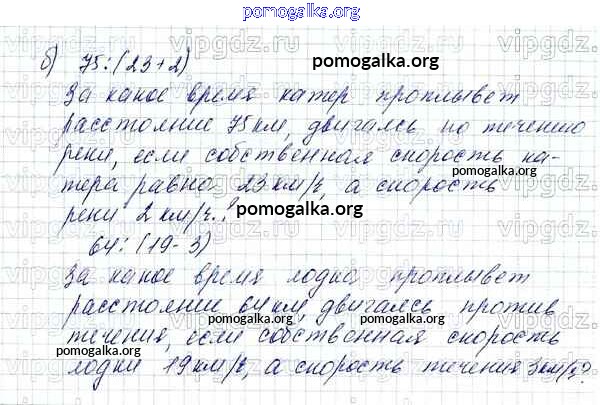 pomogalka.org
б) 75:(23+2)
pomogalka.org
За какое время катер проплывет
расстояние 75 км, двигаясь по течению
реки, если собственная скорость ка-
тера равна 23 км/ч, а скорость
реки 2 км/ч.?
pomogalka.org
64:(19-3)
За какое время лодка проплывет
pomogalka.org
расстоянии 64 км, двигаясь против
pomogalka.org
pomogalka.org
течения, если собственная скорость
pomogalka.org
лодки 19 км/ч, а скорость течения 3 км/ч?